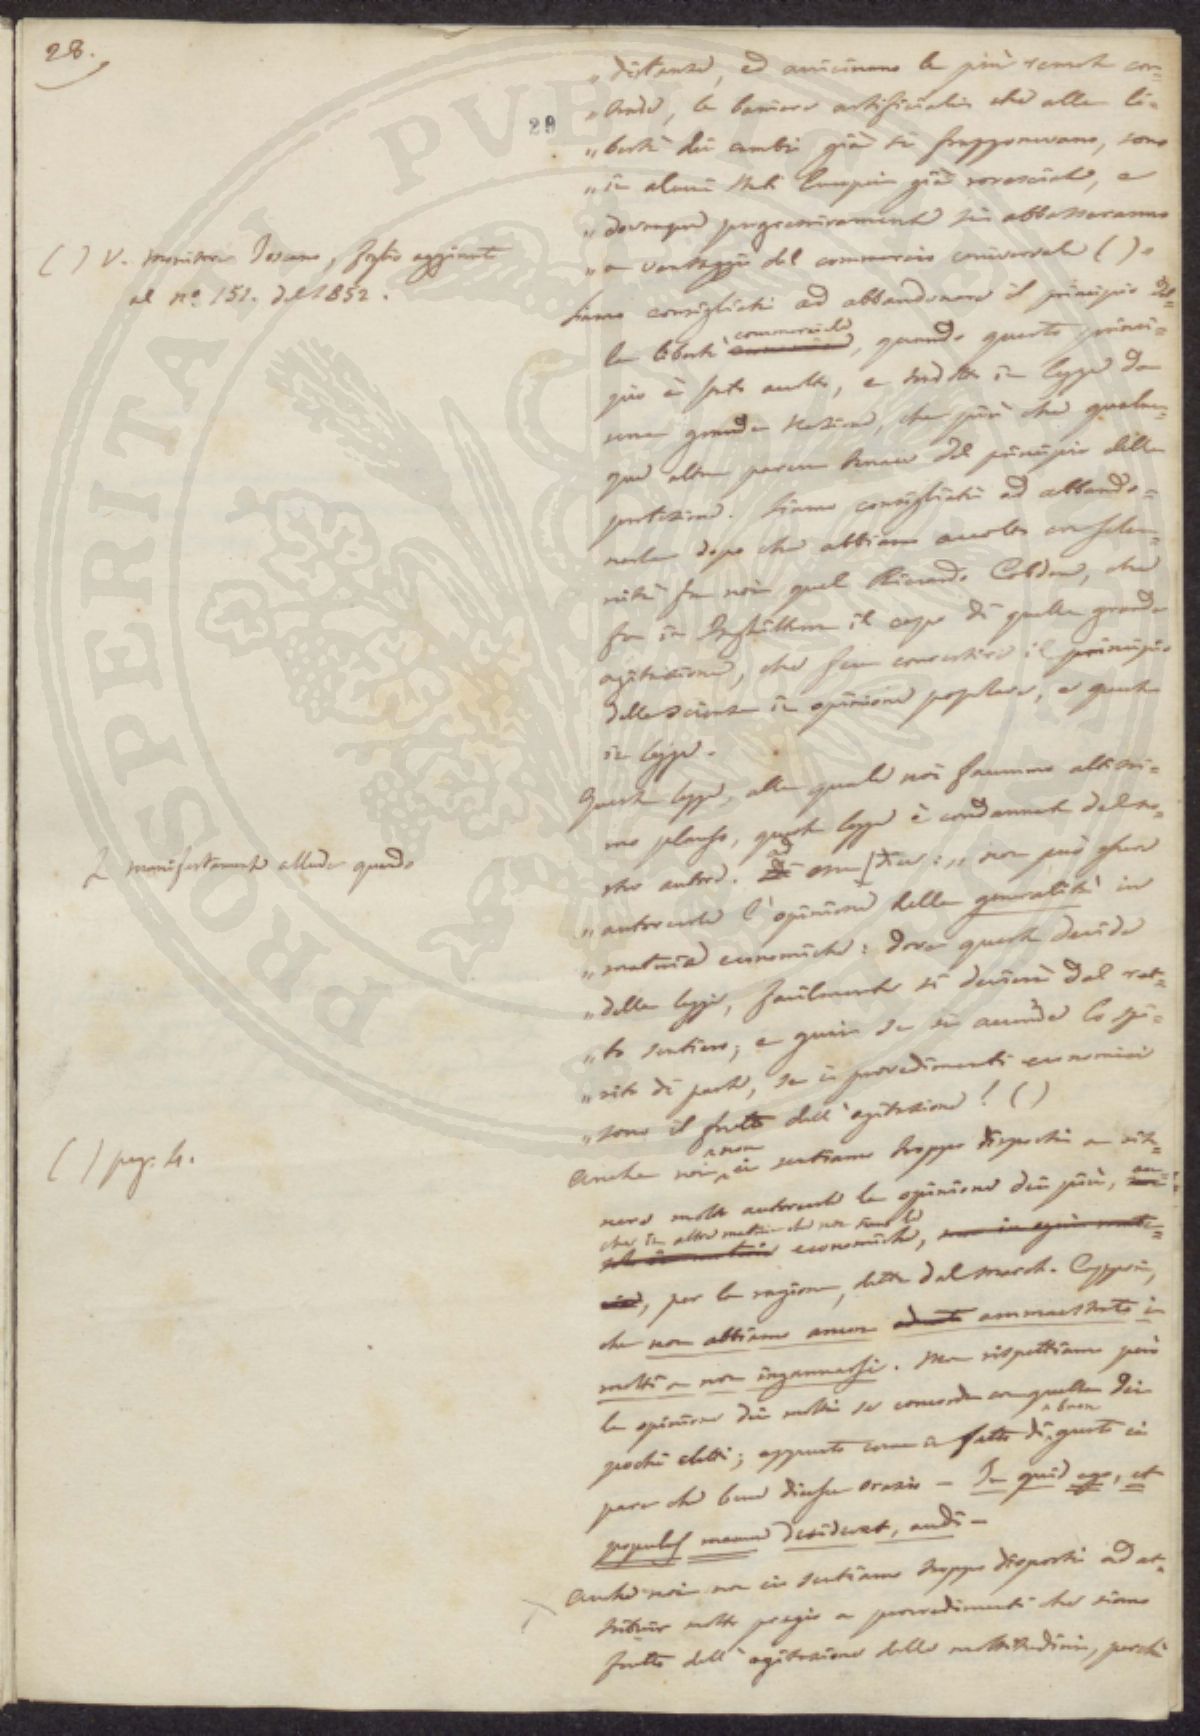 28.
29
„ distanze, ed avvicinano le più remote con-
„ trade, le barriere artificiali che alla li-
„ bertà dei cambi già si frapponevano, sono
„ in alcuni Stati Europei già rovesciate, e
„ dovunque progressivamente si abbasseranno
„ a vantaggio del commercio universale ( ) „
( ) V. Monitore Toscano, foglio aggiunto
al nº 151. del 1852.
Siamo consigliati ad abbandonare il principio del-
la libertà commerciale, quando questo princi-
pio è stato accolto, e tradotto in legge da
una grande Nazione, che più che qualun-
que altra pareva tenace del principio della
protezione. Siamo consigliati ad abbando-
narla dopo che abbiamo accolto con solen-
nità fra noi quel Riccardo Cobden, che
fu in Inghilterra il capo di quella grande
agitazione, che fece convertire il principio
della scienza in opinione popolare, e questa
in legge.
Questa legge, alla quale noi facemmo altissi-
mo plauso, questa legge è condannata dal no-
stro autore. Ad essa [ dice: „ non può essere
L manifestamente allude quando
„ autorevole l'opinione della generalità in
„ materie economiche: dove questa decide
„ della legge, facilmente si devierà dal ret-
„ to sentiero; e guai se si accende lo spi-
„ rito di parte, se i provvedimenti economici
„ sono il frutto dell'agitazione! ( )
( ) pag. 4.
Anche noi non ci sentiamo troppo disposti a rite-
nere molto autorevole la opinione dei più,
che in altre materie che non sono le
economiche,
per la ragione, detta dal March. Capponi,
che non abbiamo ancora ammaestrato i
molti a non ingannarsi. Ma rispettiamo però
la opinione dei molti se concorda con quella dei
pochi eletti; appunto come in fatto di buon gusto ci
pare che bene dicesse Orazio - Tu quid ego, et
populus mecum desideret, audi -
Anche noi non ci sentiamo troppo disposti ad at-
tribuire molto pregio a provvedimenti che siano
frutto dell'agitazione delle moltitudini, perchè